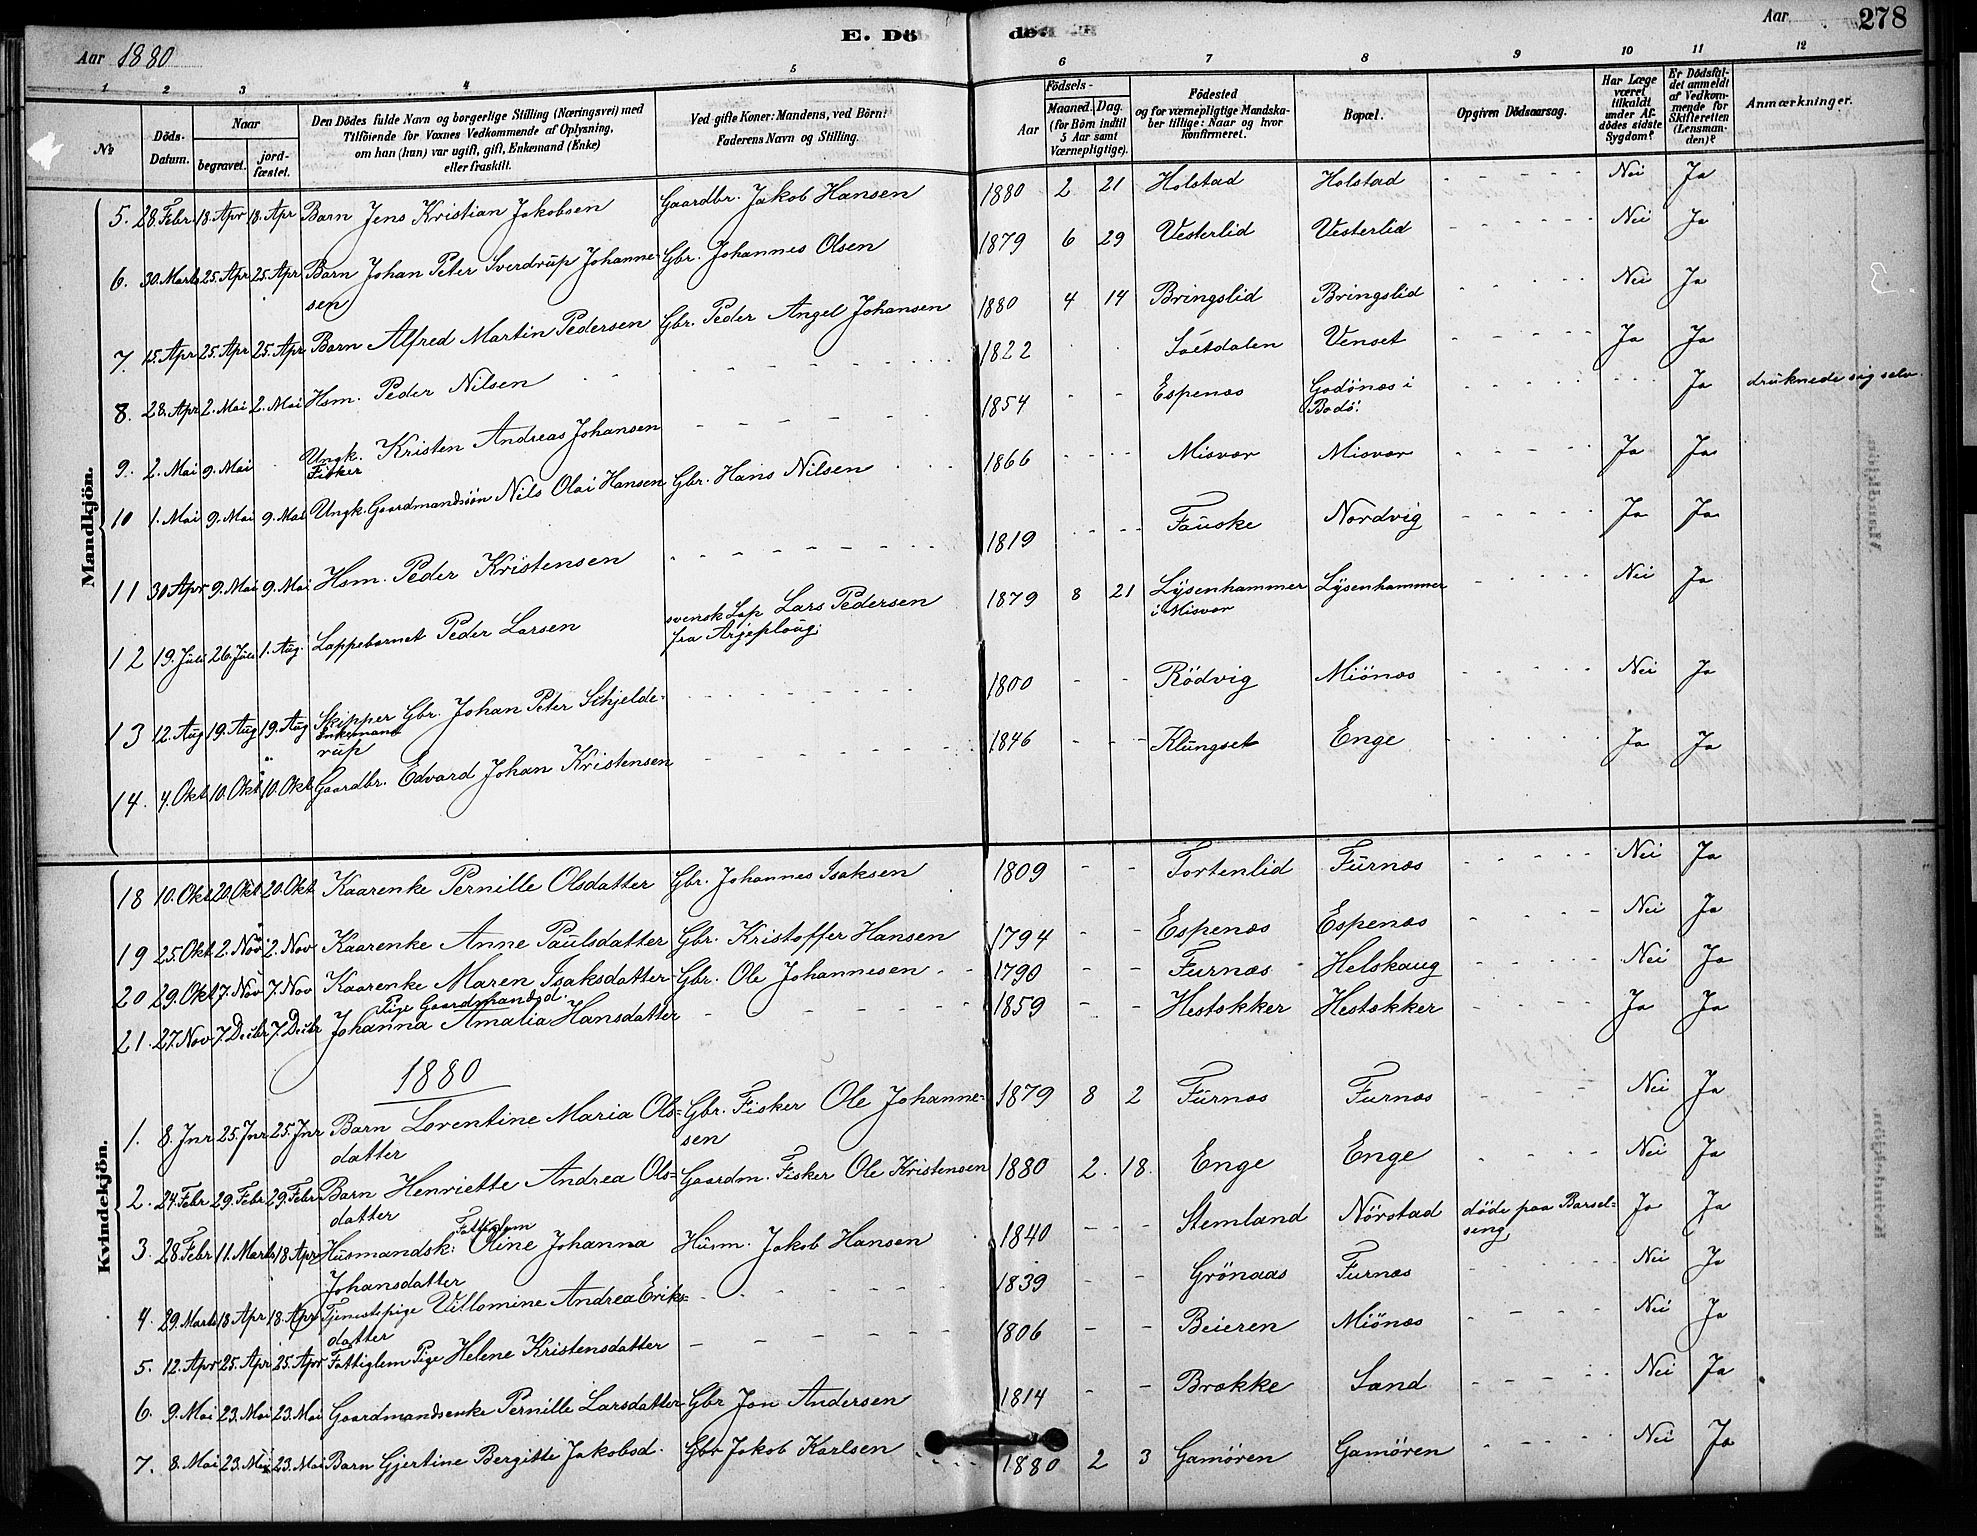 E. Dö
de.
Aar 1880
Aar
278
1 2 3 4 5 6 7 8 9 10 11 12
No
Döds-Datum.
Naar
begravet.
jord-fæstet.
Den Dödes fulde Navn og borgerlige Stilling (Næringsvei) med
Tilföiende for Voxnes Vedkommende af Oplysning,
om han (hun) var ugift, gift, Enkemand (Enke)
eller fraskilt.
Ved gifte Koner: Mandens, ved Börn:
Faderens Navn og Stilling.
Födsels-
Aar
Maaned. Dag.
(for Börn indtil
5 Aar samt
Værnepligtige).
Födested
og for værnepligtige Mandska-
ber tillige: Naar og hvor
konfirmeret.
Bopæl.
Opgiven Dödsaarsag.
Har Læge
været
tilkaldt
under Af-
dödes sidste
Sygdom?
Er Dödsfal-
det anmeldt
af Vedkom-
mende for
Skifteretten
(Lensman-
den)?
Anmærkninger.
Mandkjön.
5. 28. Febr 18. Apr 18. Apr Barn Jens Kristian Jakobsen Gaardbr. Jakob Hansen 1880 2 21 Holstad Holstad Nei Ja
6. 30. Marts 25. Apr 25. Apr Barn Johan Peter Sverdrup Johanne- Gbr. Johannes Olsen 1879 6 29 Vesterlid Vesterlid Nei Ja
sen
7. 15. Apr 25. Apr 25. Apr Barn Alfred Martin Pedersen Gbr. Peder Angel Johansen 1880 4 14 Bringslid Bringslid Nei Ja
8. 28. Apr 2. Mai 2. Mai Hsm. Peder Nilsen 1822 Sætdalen Venset Ja Ja
9. 2. Mai 9. Mai Ungk. Kristen Andreas Johansen 1854 Espenæs Godönæs i Ja druknede sig selv.
Fisker
Bodö.
10 1. Mai 9. Mai 9. Mai Ungk. Gaardmandssön Nils Olai Hansen Gbr. Hans Nilsen 1866 Misvær Misvær Ja Ja
11 30 Apr 9. Mai 9. Mai Hsm. Peder Kristensen 1819 Fauske Nordvig Ja Ja
12 19. Juli 26. Juli 1. Aug. Lappebarnet Peder Larsen svensk Lap Lars Pedersen 1879 8 21 Lÿsenhammer Lÿsenhammer Nei Ja
fra Arjeploug.
i Misvær
13 12. Aug 19. Aug 19. Aug Skipper Gbr. Johan Peter Schjelde- 1800 Rödvig Miönæs Nei Ja
Enkemand
rup
14. 4. Okt 10. Okt 10. Okt Gaardbr. Edvard Johan Kristensen 1846 Klungset Enge Ja Ja
Kvindekjön.
18 10. Okt 20. Okt 20. Okt Kaarenke Pernille Olsdatter Gbr. Johannes Isaksen 1809 Tortenlid Furnæs Nei Ja
19 25. Okt 2. Nov 2. Nov Kaarenke Anne Paulsdatter Gbr. Kristoffer Hansen 1794 Espenæs Espenæs Nei Ja
20 29. Okt 7. Nov 7. Nov Kaarenke Maren Isaksdatter Gbr. Ole Johannesen 1790 Furnæs Helskaug Nei Ja
Pige Gaardmandsd.
21. 27. Nov 7. Decbr 7. Decbr Johanna Amalia Hansdatter 1859 Hestekker Hestekker Ja Ja
1880
1. 8. Jnr 25. Jnr 25. Jnr Barn Lorentine Maria Ols- Gbr. Fisker Ole Johanne- 1879 8 2 Furnæs Furnæs Nei Ja
datter
sen
2. 24. Febr 29. Febr 29. Febr Barn Henriette Andrea Ols- Gaardm. Fisker Ole Kristensen 1880 2. 18. Enge Enge Nei Ja
datter
3. 28 Febr 11. Marts 18 Apr Husmandsk. Oline Johanna Husm. Jakob Hansen 1840 Stemland Nörstad döde paa Barsel- Ja Ja
Johansdatter
seng
4. 29. Marts 18 Apr 18. Apr Tjenestepige Villomine Andrea Eriks- 1839 Grönaas Furnæs Nei Ja
datter
5. 12. Apr 25. Apr 25. Apr Fattiglem Pige Helene Kristensdatter 1806 Beieren Miönæs Nei Ja
6. 9. Mai 23. Mai 23. Mai Gaardmandsenke Pernille Larsdatter Gbr Jon Andersen 1814 Brække Sand Nei Ja
7. 8. Mai 23. Mai 23. Mai Barn Gjertine Bergitte Jakobsd. Gbr Jakob Karlsen 1880 2 3 Gamören Gamören Nei Ja